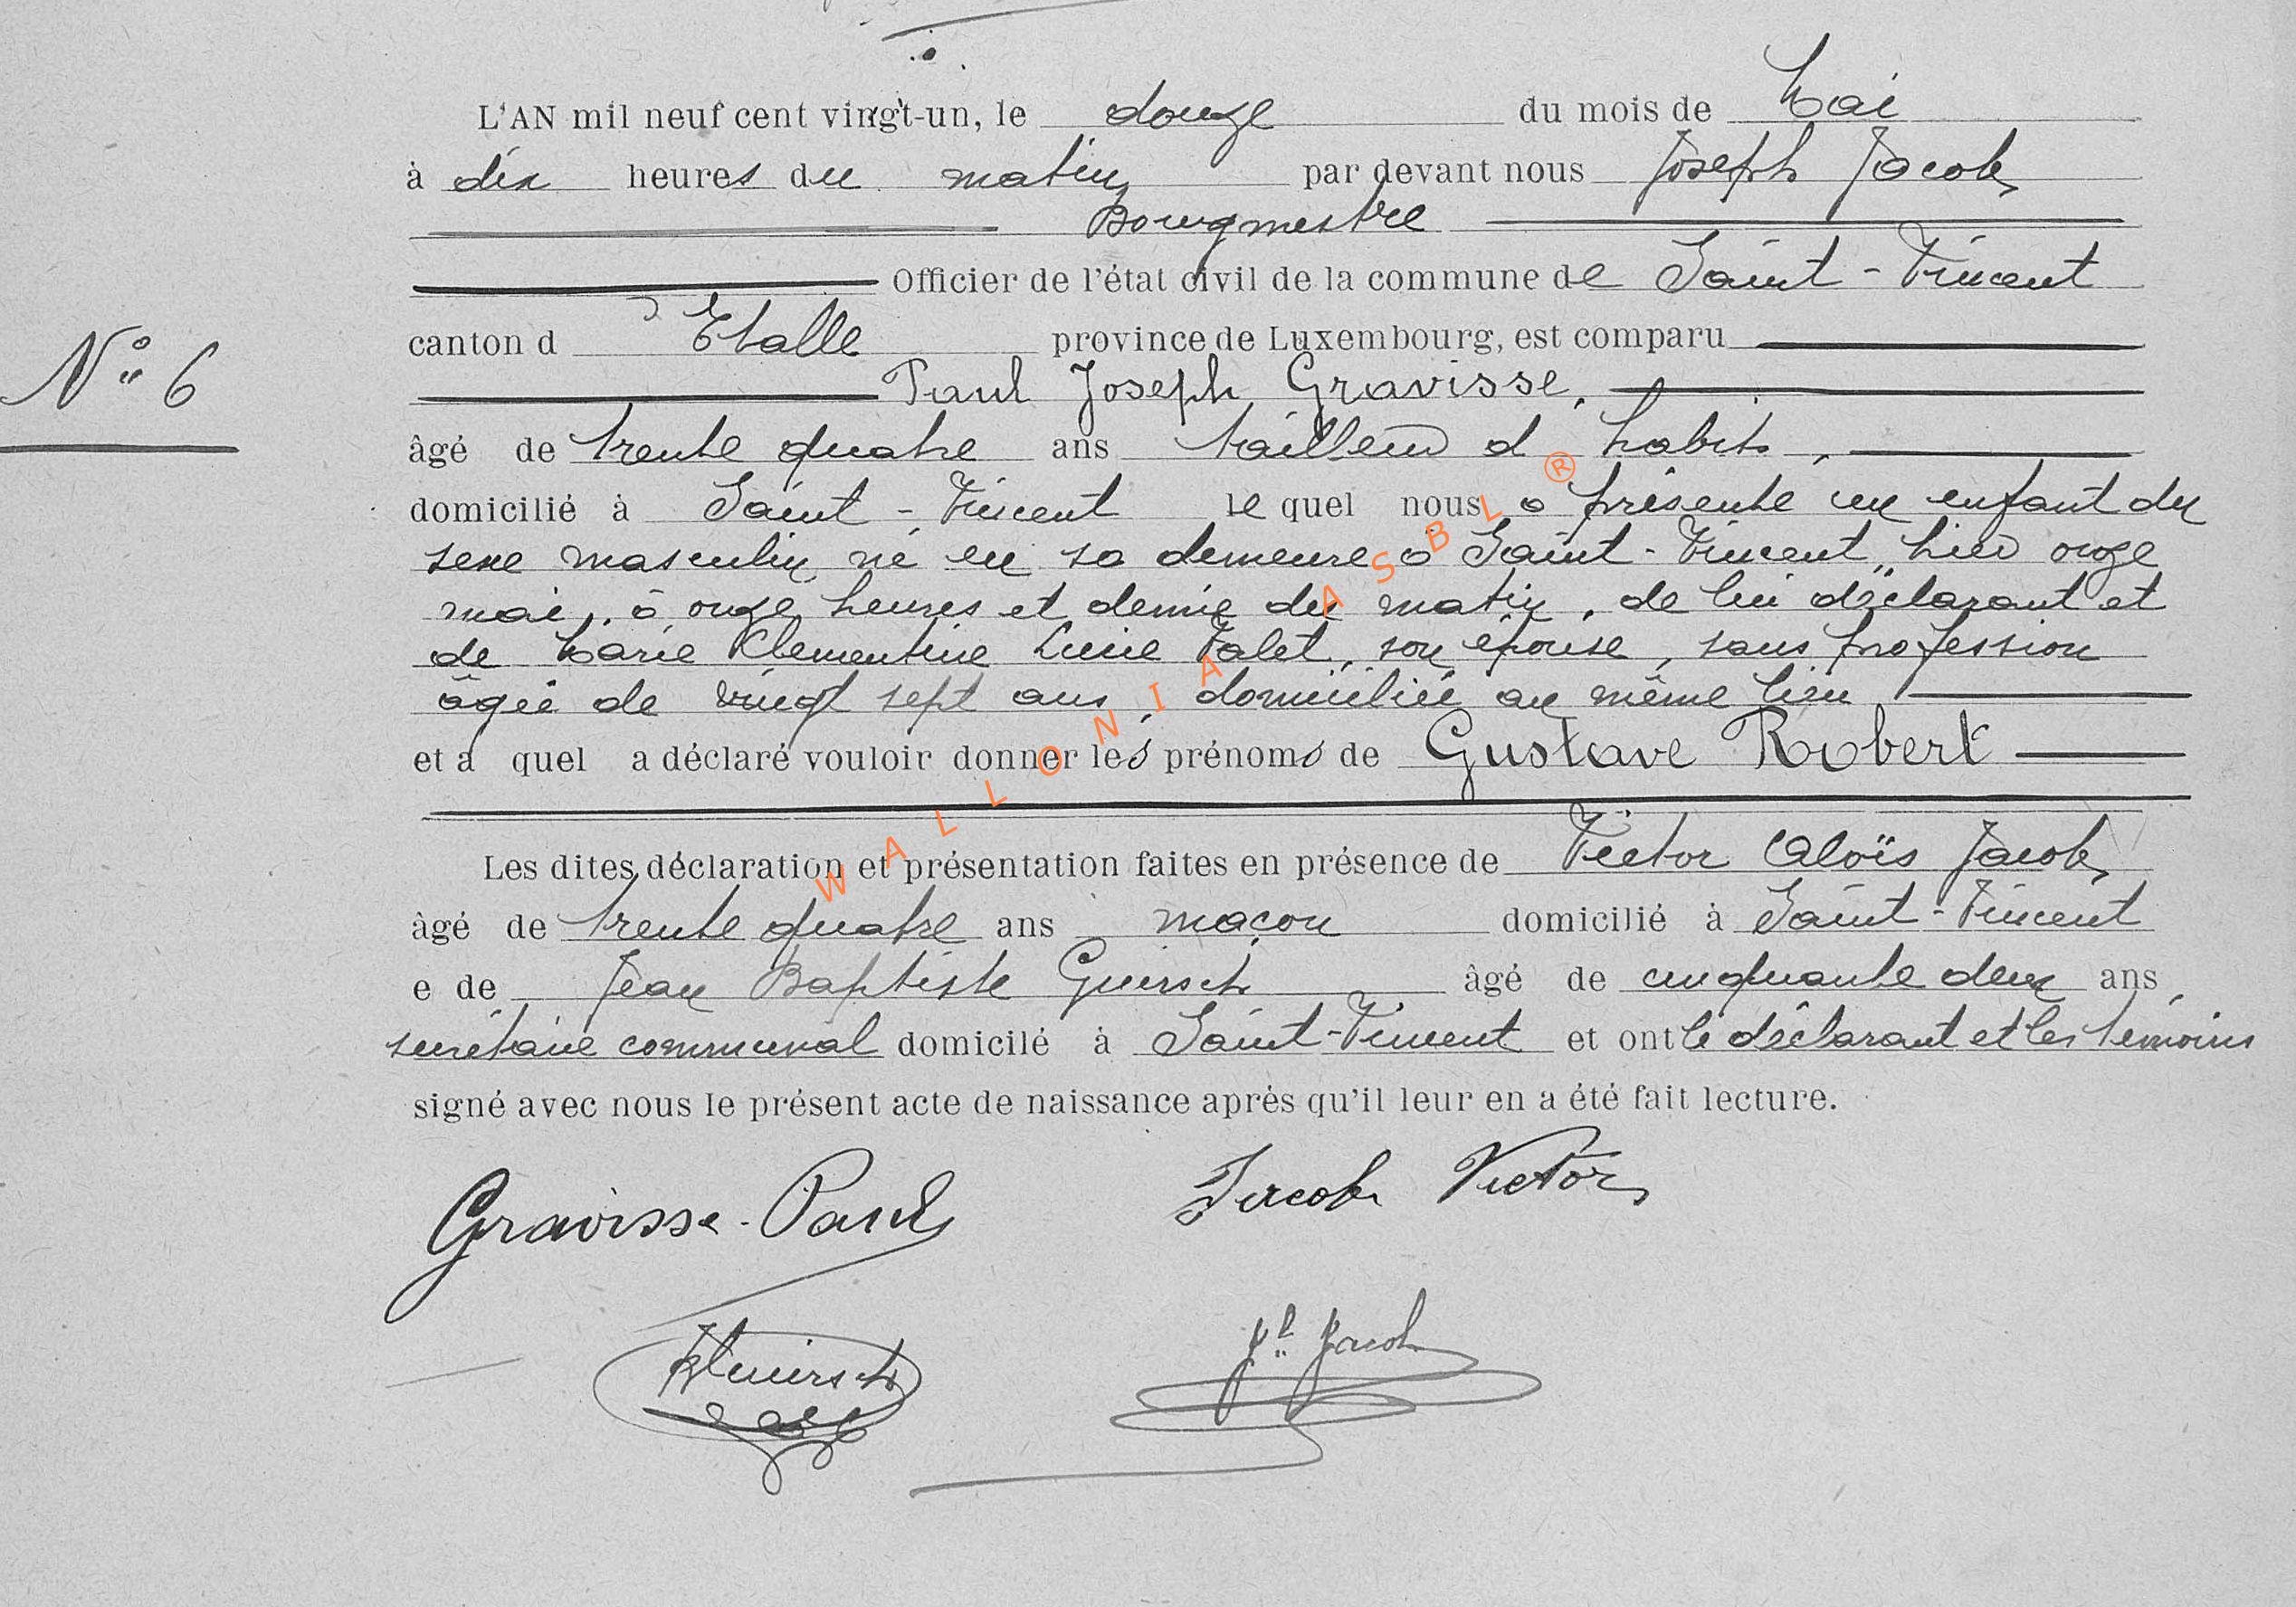 L'AN mil neuf cent vingt-un, le douze du mois de Mai
à dix heures du matin par devant nous Joseph Jacob
Bourgmestre
Officier de l'état civil de la commune de Saint-Vincent
canton d'Etalle province de Luxembourg, est comparu
N° 6
Paul Joseph Gravisse,
âgé de trente quatre ans tailleur d'habits,
domicilié à Saint-Vincent lequel nous a présenté un enfant du
sexe masculin né en sa demeure à Saint-Vincent, hier onze
mai, à onze heures et demie du matin, de lui déclarant et
de Marie Clementine Lucie Valet, son épouse, sans profession
âgée de vingt sept ans, domiciliée au même lieu
et a quel a déclaré vouloir donner les prénoms de Gustave Robert
Les dites déclaration et présentation faites en présence de Victor Aloïs Jacob
âgé de trente quatre ans maçon domicilié à Saint-Vincent
e de Jean Baptiste Guirsch âgé de cinquante deux ans,
secrétaire communal domicilé à Saint-Vincent et ont le déclarant et les témoins
signé avec nous le présent acte de naissance après qu'il leur en a été fait lecture.
Gravisse-Paul Jacob Victor
Guirsch Jh Jacob
WALLONIA ASBL ®